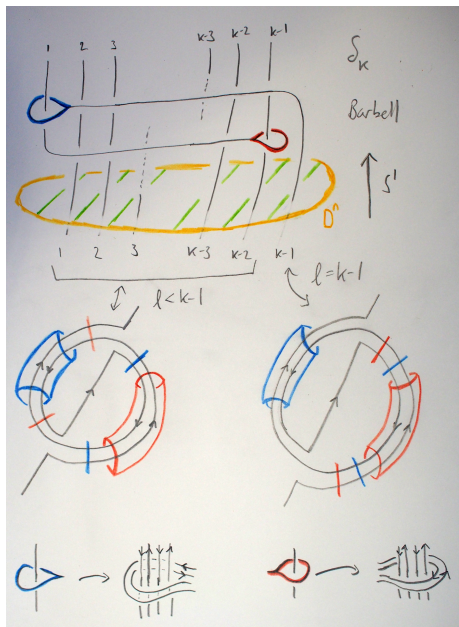 1 2 3 k-3 k-2 k-1
δₖ
Barbell
S¹
Dⁿ
1 2 3 k-3 k-2 k-1
l<k-1
l=k-1